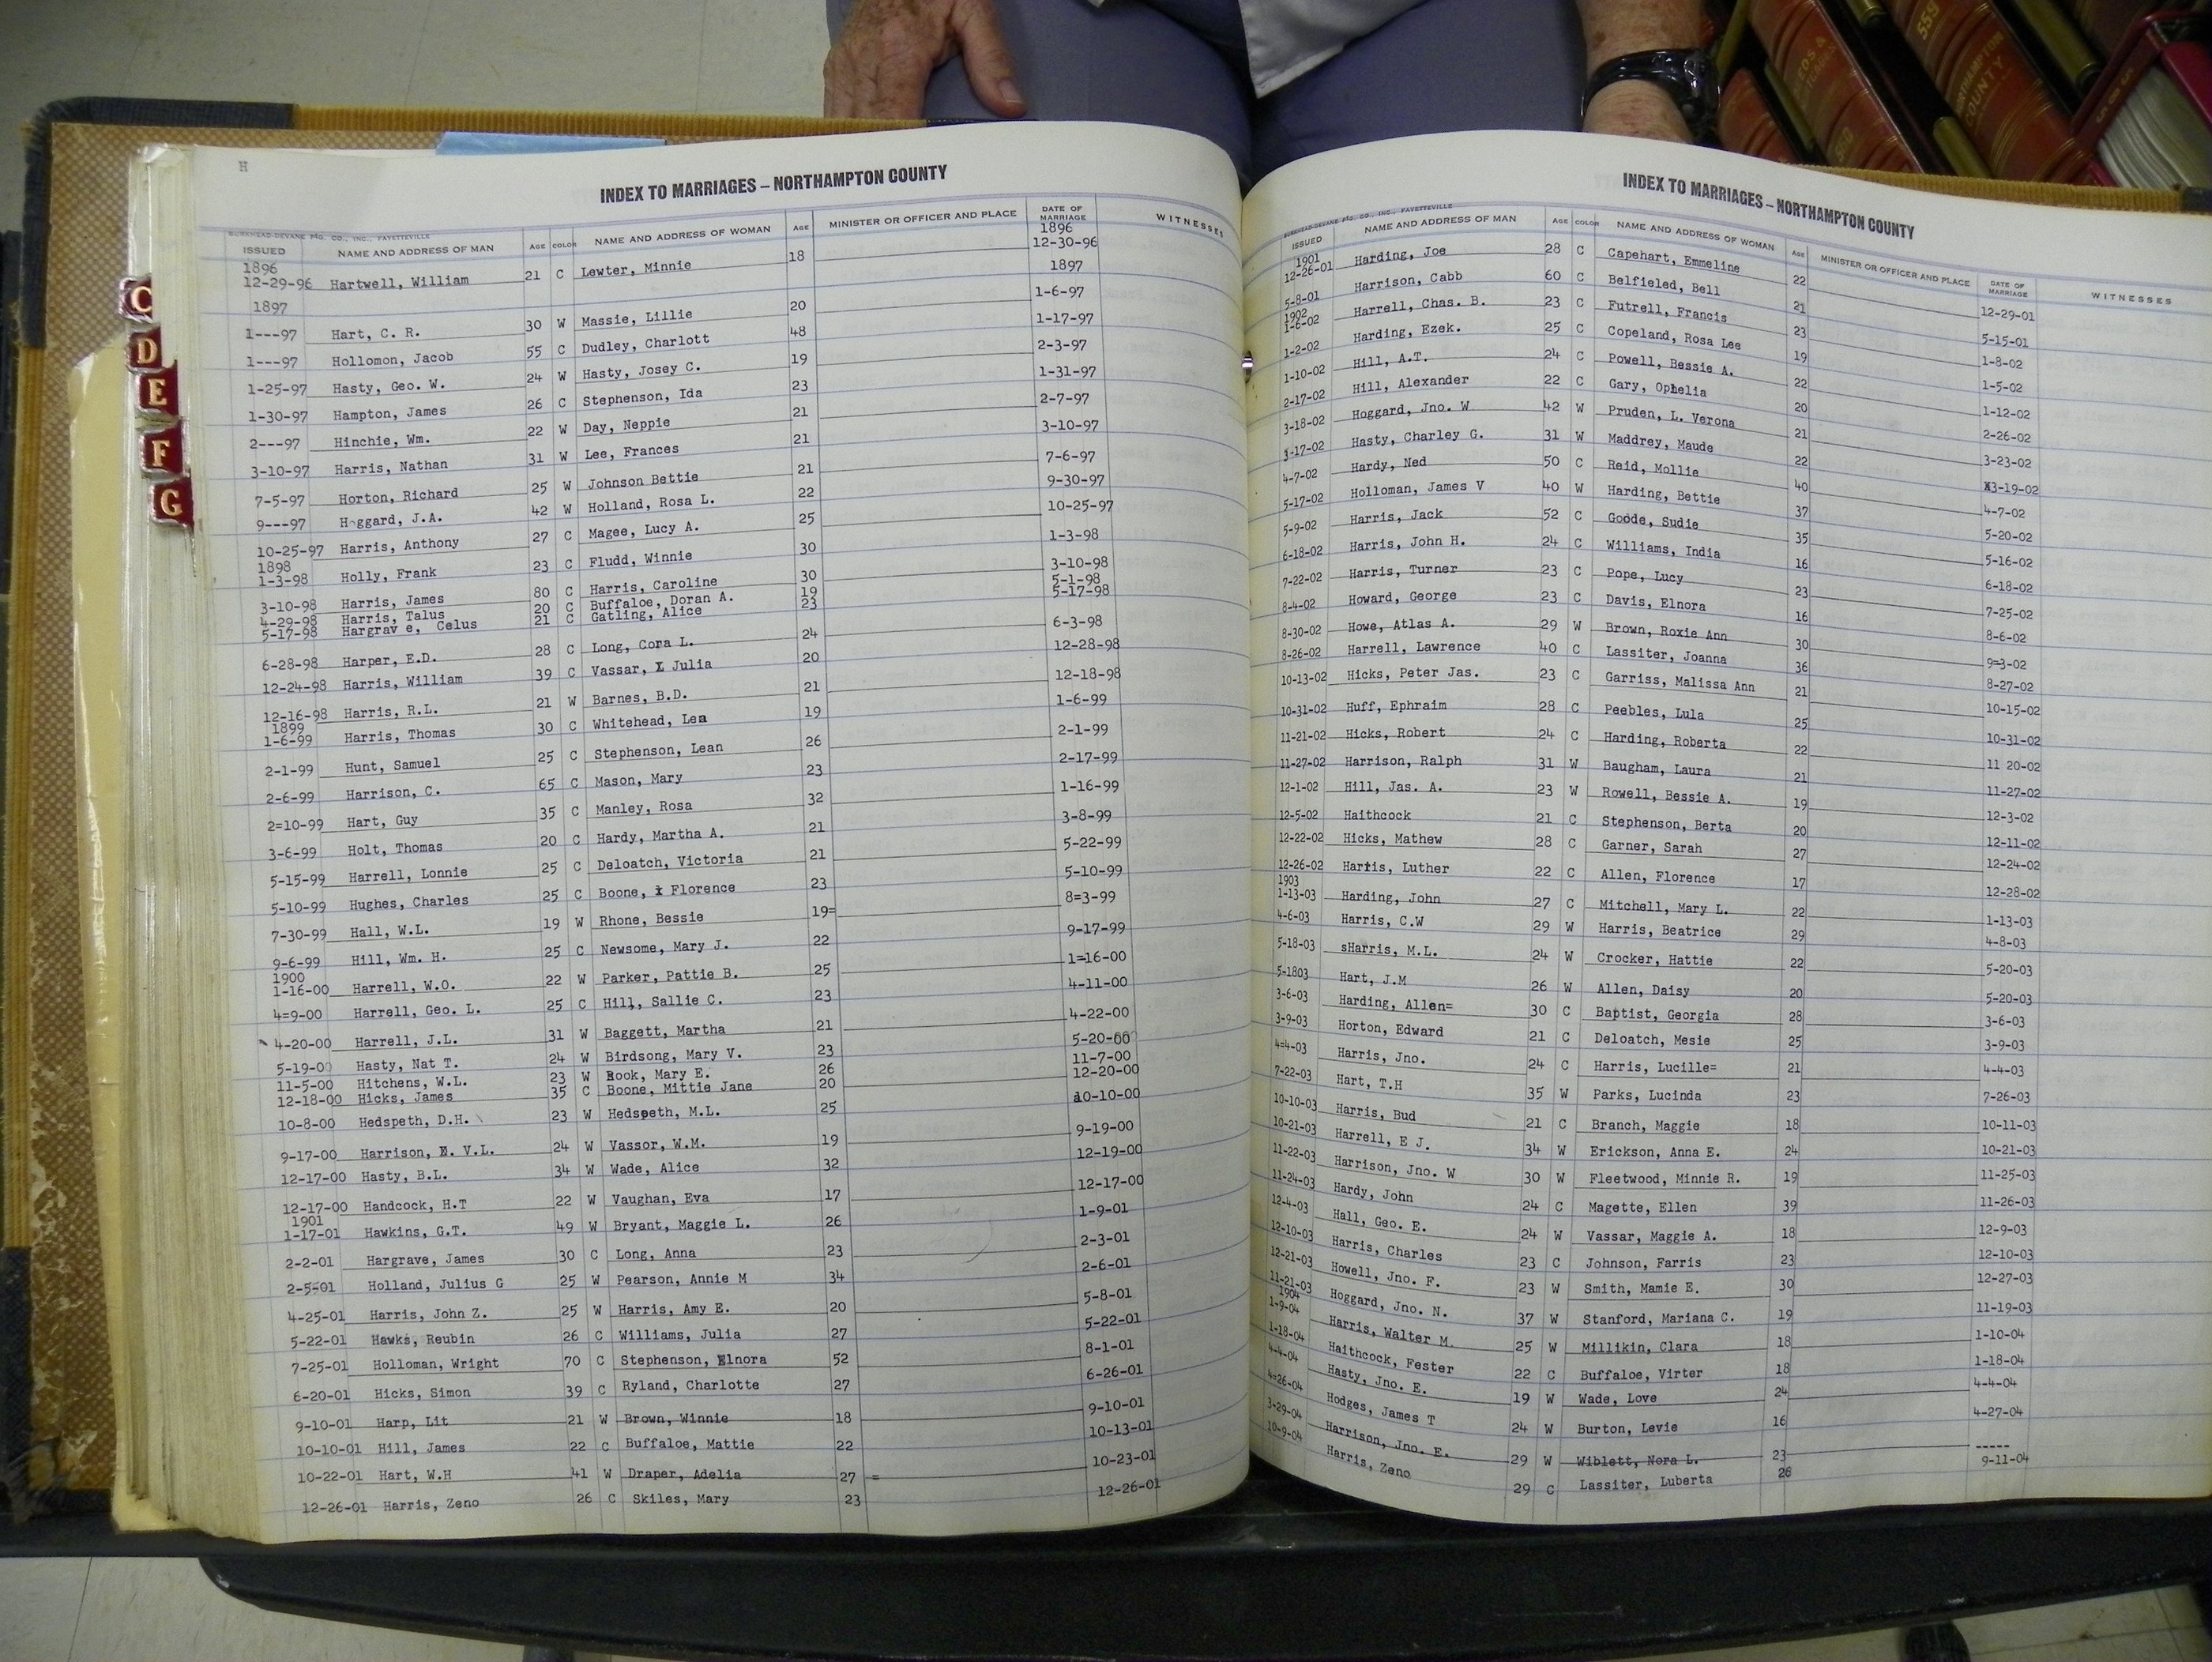 H
INDEX TO MARRIAGES – NORTHAMPTON COUNTY
BURKHEAD-DEVANE P'G. CO., INC., FAYETTEVILLE
ISSUED NAME AND ADDRESS OF MAN AGE COLOR NAME AND ADDRESS OF WOMAN AGE MINISTER OR OFFICER AND PLACE DATE OF MARRIAGE WITNESSES
1896 1896
12-29-96 Hartwell, William 21 C Lewter, Minnie 18 12-30-96
1897 1897
1---97 Hart, C. R. 30 W Massie, Lillie 20 1-6-97
1---97 Hollomon, Jacob 55 C Dudley, Charlott 48 1-17-97
1-25-97 Hasty, Geo. W. 24 W Hasty, Josey C. 19 2-3-97
1-30-97 Hampton, James 26 C Stephenson, Ida 23 1-31-97
2---97 Hinchie, Wm. 22 W Day, Neppie 21 2-7-97
3-10-97 Harris, Nathan 31 W Lee, Frances 21 3-10-97
7-5-97 Horton, Richard 25 W Johnson Bettie 21 7-6-97
9---97 Hoggard, J.A. 42 W Holland, Rosa L. 22 9-30-97
10-25-97 Harris, Anthony 27 C Magee, Lucy A. 25 10-25-97
1898
1-3-98 Holly, Frank 23 C Fludd, Winnie 30 1-3-98
3-10-98 Harris, James 80 C Harris, Caroline 30 3-10-98
4-29-98 Harris, Talus 20 C Buffaloe, Doran A. 19 5-1-98
5-17-98 Hargrav e, Celus 21 C Gatling, Alice 23 5-17-98
6-28-98 Harper, E.D. 28 C Long, Cora L. 24 6-3-98
12-24-98 Harris, William 39 C Vassar, I Julia 20 12-28-98
12-16-98 Harris, R.L. 21 W Barnes, B.D. 21 12-18-98
1899
1-6-99 Harris, Thomas 30 C Whitehead, Lea 19 1-6-99
2-1-99 Hunt, Samuel 25 C Stephenson, Lean 26 2-1-99
2-6-99 Harrison, C. 65 C Mason, Mary 23 2-17-99
2=10-99 Hart, Guy 35 C Manley, Rosa 32 1-16-99
3-6-99 Holt, Thomas 20 C Hardy, Martha A. 21 3-8-99
5-15-99 Harrell, Lonnie 25 C Deloatch, Victoria 21 5-22-99
5-10-99 Hughes, Charles 25 C Boone, i Florence 23 5-10-99
7-30-99 Hall, W.L. 19 W Rhone, Bessie 19= 8=3-99
9-6-99 Hill, Wm. H. 25 C Newsome, Mary J. 22 9-17-99
1900
1-16-00 Harrell, W.O. 22 W Parker, Pattie B. 25 1=16-00
4=9-00 Harrell, Geo. L. 25 C Hill, Sallie C. 23 4-11-00
4-20-00 Harrell, J.L. 31 W Baggett, Martha 21 4-22-00
5-19-00 Hasty, Nat T. 24 W Birdsong, Mary V. 23 5-20-00
11-5-00 Hitchens, W.L. 23 W Rook, Mary E. 26 11-7-00
12-18-00 Hicks, James 35 C Boone, Mittie Jane 20 12-20-00
10-8-00 Hedspeth, D.H. 23 W Hedspeth, M.L. 25 10-10-00
9-17-00 Harrison, N. V.L. 24 W Vassor, W.M. 19 9-19-00
12-17-00 Hasty, B.L. 34 W Wade, Alice 32 12-19-00
12-17-00 Handcock, H.T 22 W Vaughan, Eva 17 12-17-00
1901
1-17-01 Hawkins, G.T. 49 W Bryant, Maggie L. 26 1-9-01
2-2-01 Hargrave, James 30 C Long, Anna 23 2-3-01
2-5-01 Holland, Julius G 25 W Pearson, Annie M 34 2-6-01
4-25-01 Harris, John Z. 25 W Harris, Amy E. 20 5-8-01
5-22-01 Hawks, Reubin 26 C Williams, Julia 27 5-22-01
7-25-01 Holloman, Wright 70 C Stephenson, Elnora 52 8-1-01
6-20-01 Hicks, Simon 39 C Ryland, Charlotte 27 6-26-01
9-10-01 Harp, Lit 21 W Brown, Winnie 18 9-10-01
10-10-01 Hill, James 22 C Buffaloe, Mattie 22 10-13-01
10-22-01 Hart, W.H 41 W Draper, Adelia 27 = 10-23-01
12-26-01 Harris, Zeno 26 C Skiles, Mary 23 12-26-01
INDEX TO MARRIAGES – NORTHAMPTON COUNTY
BURKHEAD-DEVANE P'G. CO., INC., FAYETTEVILLE
ISSUED NAME AND ADDRESS OF MAN AGE COLOR NAME AND ADDRESS OF WOMAN AGE MINISTER OR OFFICER AND PLACE DATE OF MARRIAGE WITNESSES
1901
12-26-01 Harding, Joe 28 C Capehart, Emmeline 22 12-29-01
5-8-01 Harrison, Cabb 60 C Belfieled, Bell 21 5-15-01
1902
1-6-02 Harrell, Chas. B. 23 C Futrell, Francis 23 1-8-02
1-2-02 Harding, Ezek. 25 C Copeland, Rosa Lee 19 1-5-02
1-10-02 Hill, A.T. 24 C Powell, Bessie A. 22 1-12-02
2-17-02 Hill, Alexander 22 C Gary, Ophelia 20 2-26-02
3-18-02 Hoggard, Jno. W 42 W Pruden, L. Verona 21 3-23-02
3-17-02 Hasty, Charley G. 31 W Maddrey, Maude 22 3-19-02
4-7-02 Hardy, Ned 50 C Reid, Mollie 40 4-7-02
5-17-02 Holloman, James V 40 W Harding, Bettie 37 5-20-02
5-9-02 Harris, Jack 52 C Goode, Sudie 35 5-16-02
6-18-02 Harris, John H. 24 C Williams, India 16 6-18-02
7-22-02 Harris, Turner 23 C Pope, Lucy 23 7-25-02
8-4-02 Howard, George 23 C Davis, Elnora 16 8-6-02
8-30-02 Howe, Atlas A. 29 W Brown, Roxie Ann 30 9=3-02
8-26-02 Harrell, Lawrence 40 C Lassiter, Joanna 36 8-27-02
10-13-02 Hicks, Peter Jas. 23 C Garriss, Malissa Ann 21 10-15-02
10-31-02 Huff, Ephraim 28 C Peebles, Lula 25 10-31-02
11-21-02 Hicks, Robert 24 C Harding, Roberta 22 11 20-02
11-27-02 Harrison, Ralph 31 W Baugham, Laura 21 11-27-02
12-1-02 Hill, Jas. A. 23 W Rowell, Bessie A. 19 12-3-02
12-5-02 Haithcock 21 C Stephenson, Berta 20 12-11-02
12-22-02 Hicks, Mathew 28 C Garner, Sarah 27 12-24-02
12-26-02 Harris, Luther 22 C Allen, Florence 17 12-28-02
1903
1-13-03 Harding, John 27 C Mitchell, Mary L. 22 1-13-03
4-6-03 Harris, C.W 29 W Harris, Beatrice 29 4-8-03
5-18-03 sHarris, M.L. 24 W Crocker, Hattie 22 5-20-03
5-1803 Hart, J.M 26 W Allen, Daisy 20 5-20-03
3-6-03 Harding, Allen= 30 C Baptist, Georgia 28 3-6-03
3-9-03 Horton, Edward 21 C Deloatch, Mesie 25 3-9-03
4=4-03 Harris, Jno. 24 C Harris, Lucille= 21 4-4-03
7-22-03 Hart, T.H 35 W Parks, Lucinda 23 7-26-03
10-10-03 Harris, Bud 21 C Branch, Maggie 18 10-11-03
10-21-03 Harrell, E J. 34 W Erickson, Anna E. 24 10-21-03
11-22-03 Harrison, Jno. W 30 W Fleetwood, Minnie R. 19 11-25-03
11-24-03 Hardy, John 24 C Magette, Ellen 39 11-26-03
12-4-03 Hall, Geo. E. 24 W Vassar, Maggie A. 18 12-9-03
12-10-03 Harris, Charles 23 C Johnson, Farris 23 12-10-03
12-21-03 Howell, Jno. F. 23 W Smith, Mamie E. 30 12-27-03
11-21-03 Hoggard, Jno. N. 37 W Stanford, Mariana C. 19 11-19-03
1904
1-9-04 Harris, Walter M. 25 W Millikin, Clara 18 1-10-04
1-18-04 Haithcock, Fester 22 C Buffaloe, Virter 18 1-18-04
4-4-04 Hasty, Jno. E. 19 W Wade, Love 24 4-4-04
4=26-04 Hodges, James T 24 W Burton, Levie 16 4-27-04
3-29-04 Harrison, Jno. E. 29 W Wiblett, Nora L. 23 -----
10-9-04 Harris, Zeno 29 C Lassiter, Luberta 26 9-11-04
C
D
E
F
G
559
NORTHAMPTON
COUNTY